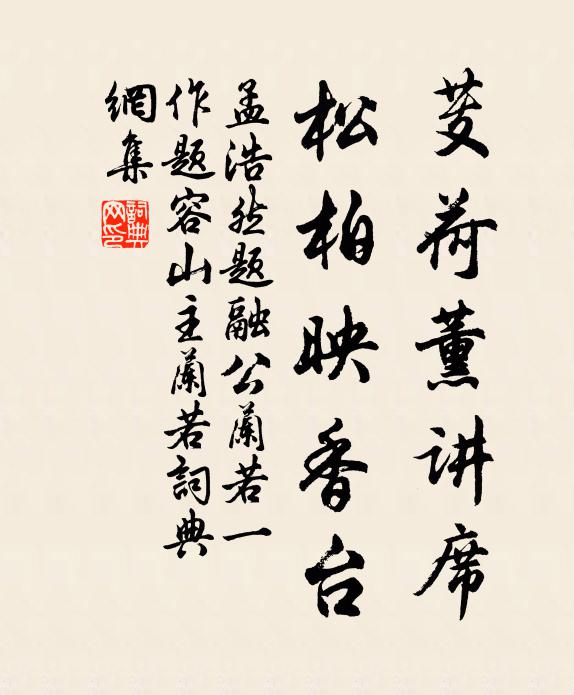 芰荷薰讲席
松柏映香台
孟浩然题融公蘭若一
作题容山主蘭若詞典
網集
詞典網印